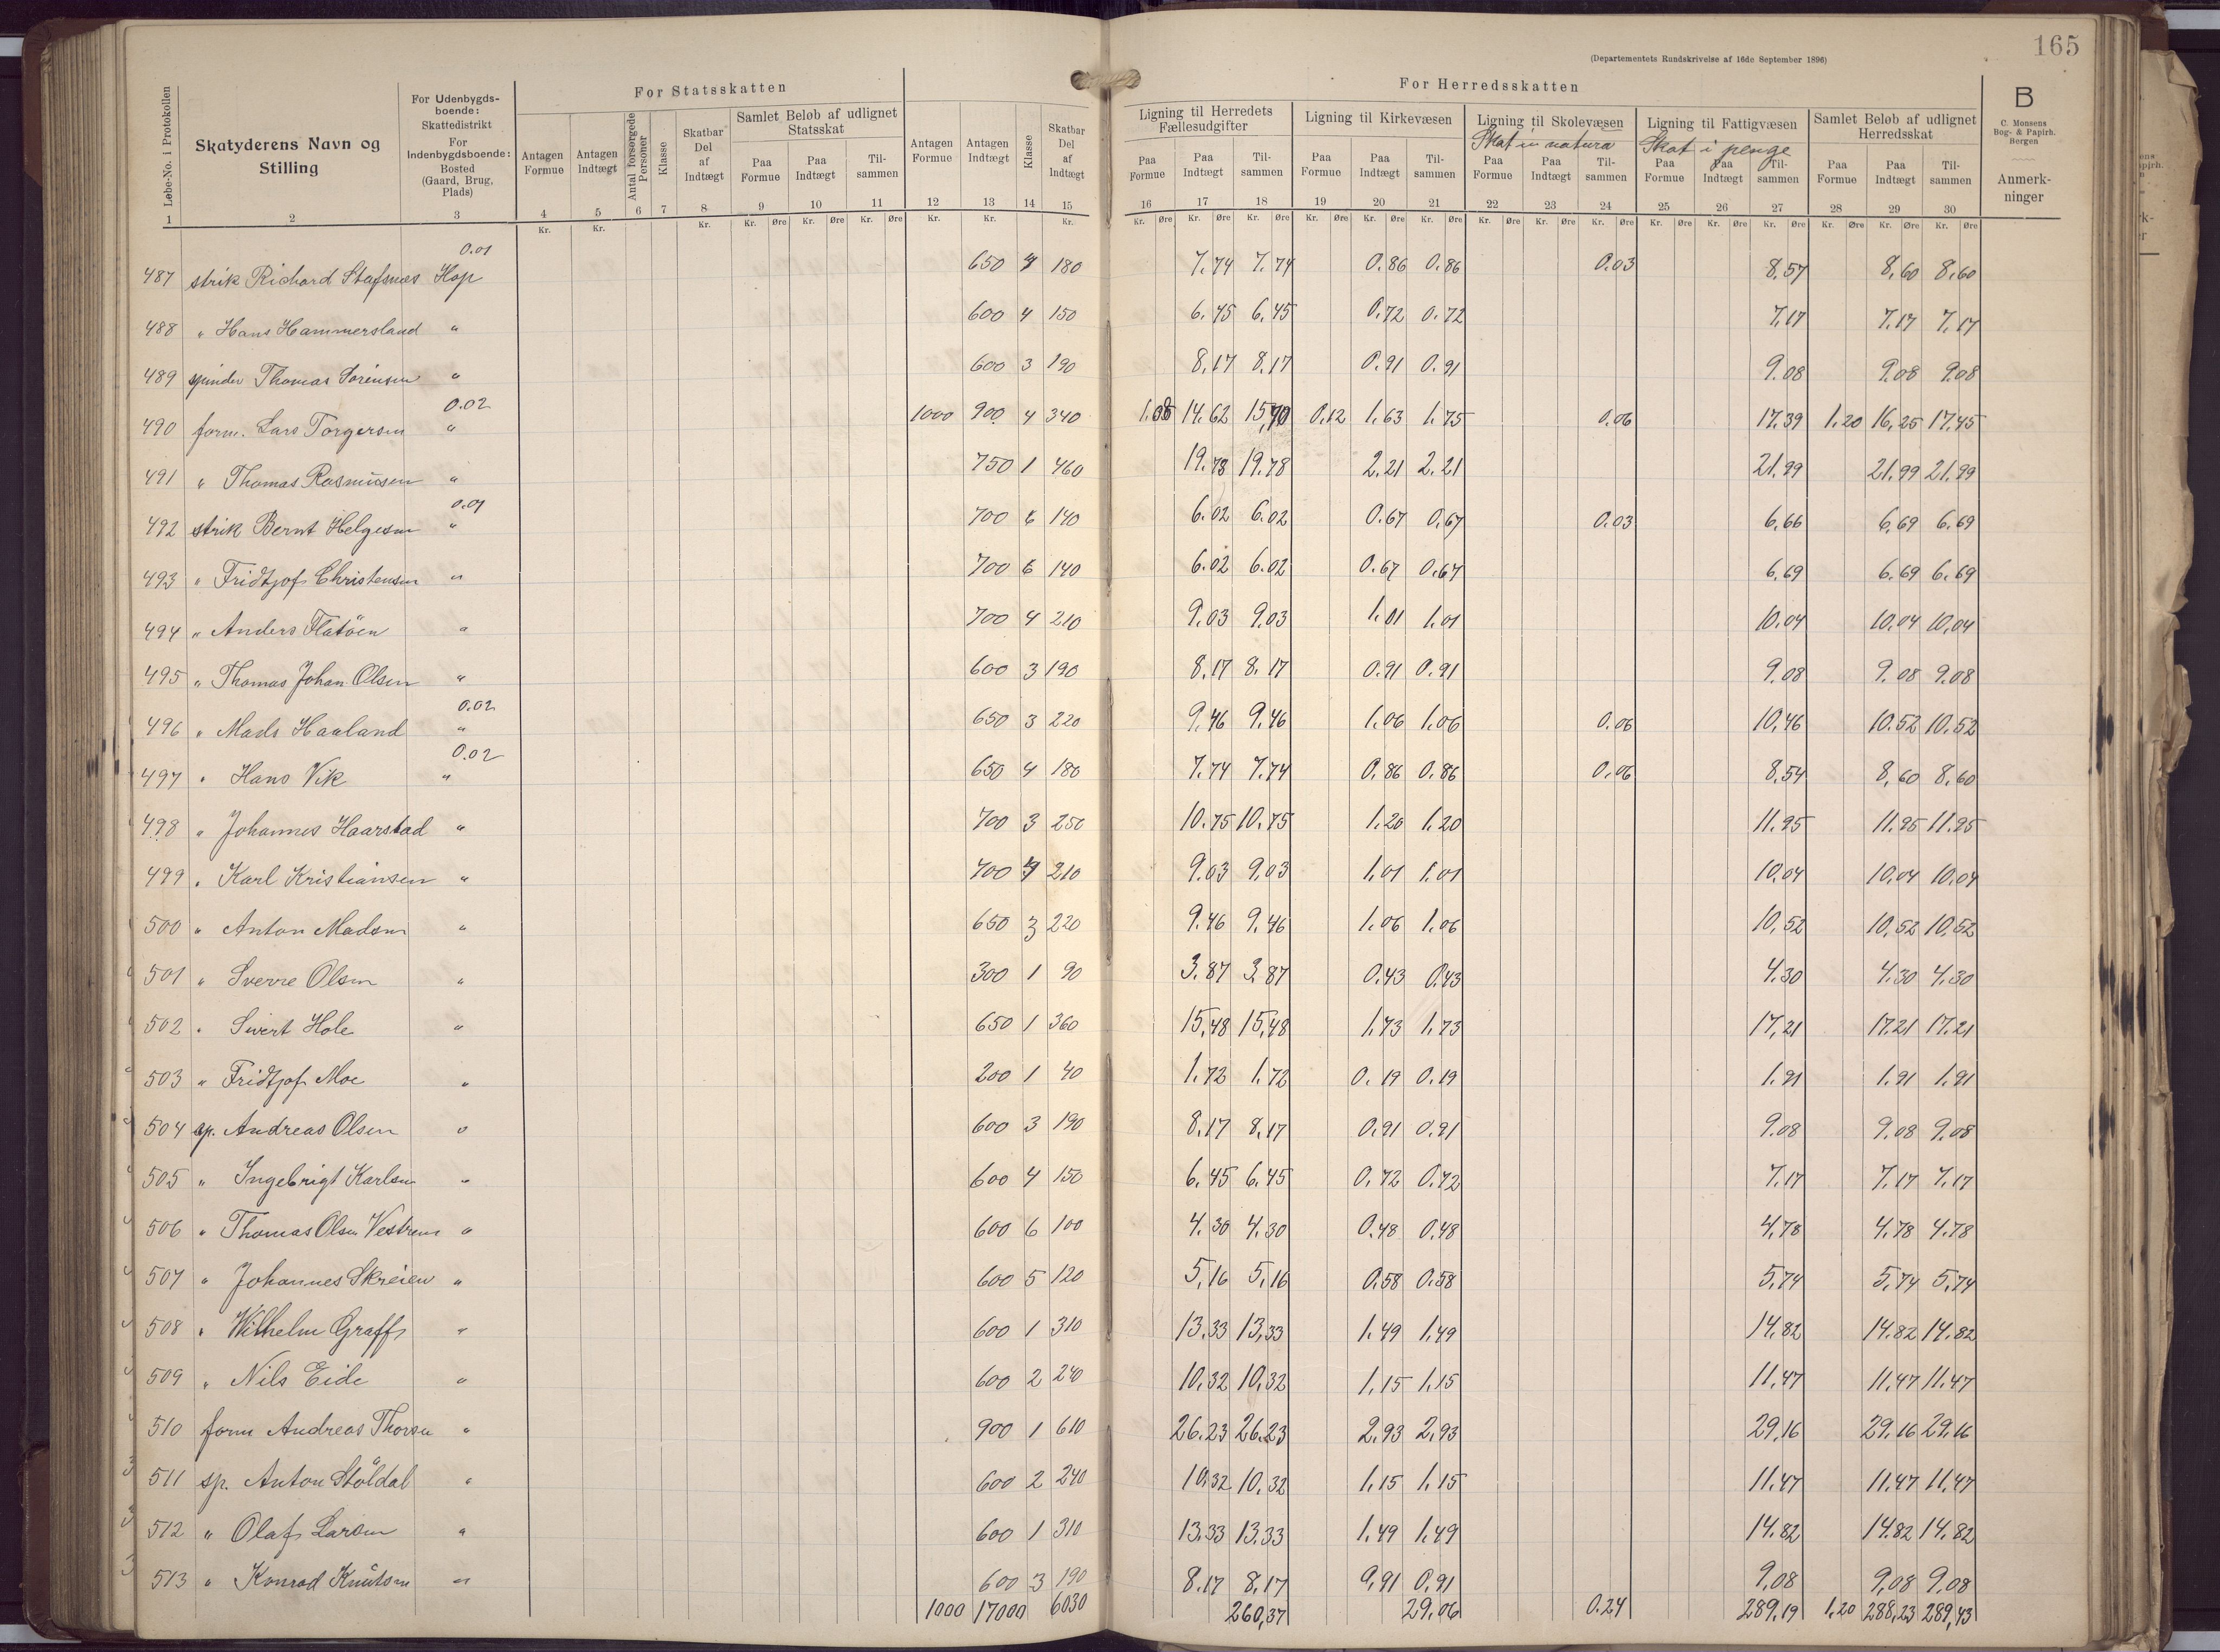 165
(Departementets Rundskrivelse af 16de September 1896)
For Statsskatten
For Herredsskatten
B
C. Monsens Bog- & Papirh. Bergen
Løbe-No. i Protokollen
Skatyderens Navn og Stilling
For Udenbygdsboende: Skattedistrikt For Indenbygdsboende: Bosted (Gaard, Brug, Plads)
Antagen Formue
Antagen Indtægt
Antal forsørgede Personer
Klasse
Skatbar Del af Indtægt
Samlet Beløb af udlignet Statsskat
Paa Formue Paa Indtægt Tilsammen
Antagen Formue
Antagen Indtægt
Klasse
Skatbar Del af Indtægt
Ligning til Herredets Fællesudgifter
Paa Formue Paa Indtægt Tilsammen
Ligning til Kirkevæsen
Paa Formue Paa Indtægt Tilsammen
Ligning til Skolevæsen
Skat in natura
Paa Formue Paa Indtægt Tilsammen
Ligning til Fattigvæsen
Skat i penge
Paa Formue Paa Indtægt Tilsammen
Samlet Beløb af udlignet Herredsskat
Paa Formue Paa Indtægt Tilsammen
Anmerkninger
1 2 3 4 5 6 7 8 9 10 11 12 13 14 15 16 17 18 19 20 21 22 23 24 25 26 27 28 29 30
0.01
487 strik Richard Stafsnæs Hop 650 4 180 7.74 7.74 0.86 0.86 0.03 8,57 8,60 8,60
488 " Hans Hammersland " 600 4 150 6.45 6,45 0.72 0.72 7,17 7,17 7,17
489 spinder Thomas Sørensen " 600 3 190 8,17 8,17 0.91 0.91 9.08 9,08 9.08
0.02
490 form. Lars Torgersen " 1000 900 4 340 1.08 14.62 15,70 0,12 1,63 1,75 0.06 17,39 1,20 16,25 17,45
491 " Thomas Rasmusen " 750 1 460 19.78 19.78 2,21 2,21 21,99 21,99 21,99
0.01
492 strik Bernt Helgesen " 700 6 140 6.02 6.02 0.67 0,67 0.03 6,66 6,69 6,69
493 " Fridtjof Christensen " 700 6 140 6.02 6.02 0.67 0.67 6,69 6,69 6,69
494 " Anders Flatöen " 700 4 210 9,03 9,03 1,01 1,01 10,04 10,04 10,04
495 " Thomas Johan Olsen " 600 3 190 8,17 8,17 0.91 0.91 9,08 9.08 9,08
0.02
496 " Mads Haaland " 650 3 220 9,46 9,46 1,06 1,06 0.06 10,46 10.52 10,52
0.02
497 " Hans Vik " 650 4 180 7.74 7.74 0,86 0.86 0,06 8,54 8,60 8,60
498 " Johannes Haarstad " 700 3 250 10.75 10.75 1,20 1,20 11.95 11.95 11.95
499 " Karl Kristiansen " 700 4 210 9.03 9,03 1,01 1,01 10,04 10,04 10,04
500 " Anton Madsen " 650 3 220 9.46 9,46 1,06 1,06 10,52 10,52 10,52
501 " Sverre Olsen " 300 1 90 3,87 3,87 0,43 0,43 4,30 4,30 4,30
502 " Sivert Hole " 650 1 360 15,48 15,48 1,73 1,73 17,21 17,21 17,21
503 " Fridtjof Moe " 200 1 40 1,72 1,72 0,19 0,19 1,91 1,91 1,91
504 sp. Andreas Olsen " 600 3 190 8,17 8,17 0,91 0,91 9.08 9,08 9,08
505 " Ingebrigt Karlsen " 600 4 150 6,45 6,45 0,72 0,72 7,17 7,17 7,17
506 " Thomas Olsen Vestrem " 600 6 100 4,30 4,30 0,48 0,48 4,78 4,78 4,78
507 " Johannes Skreien " 600 5 120 5,16 5,16 0,58 0,58 5,74 5,74 5,74
508 " Wilhelm Graff " 600 1 310 13,33 13,33 1,49 1,49 14,82 14,82 14,82
509 " Nils Eide " 600 2 240 10,32 10,32 1,15 1,15 11,47 11,47 11,47
510 form Andreas Thorsen " 900 1 610 26.23 26.23 2,93 2,93 29,16 29,16 29,16
511 sp. Anton Stöldal " 600 2 240 10,32 10,32 1,15 1,15 11.47 11.47 11,47
512 " Olaf Larsen " 600 1 310 13.33 13.33 1,49 1,49 14.82 14.82 14,82
513 " Konrad Knutsen " 600 3 190 8.17 8,17 0,91 0,91 9,08 9,08 9,08
1000 17000 6030 260,37 29,06 0.24 289,19 1,20 288,23 289,43